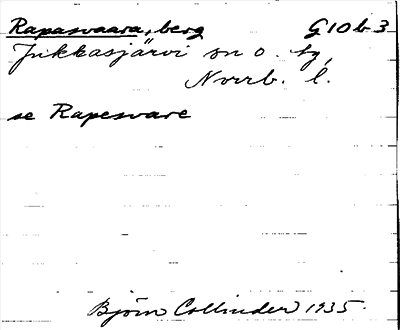 Rapasvaara, berg G10b3
Jukkasjärvi sn o. tg,
Norrb. l.
se Rapesvare
Björn Collinder 1935.